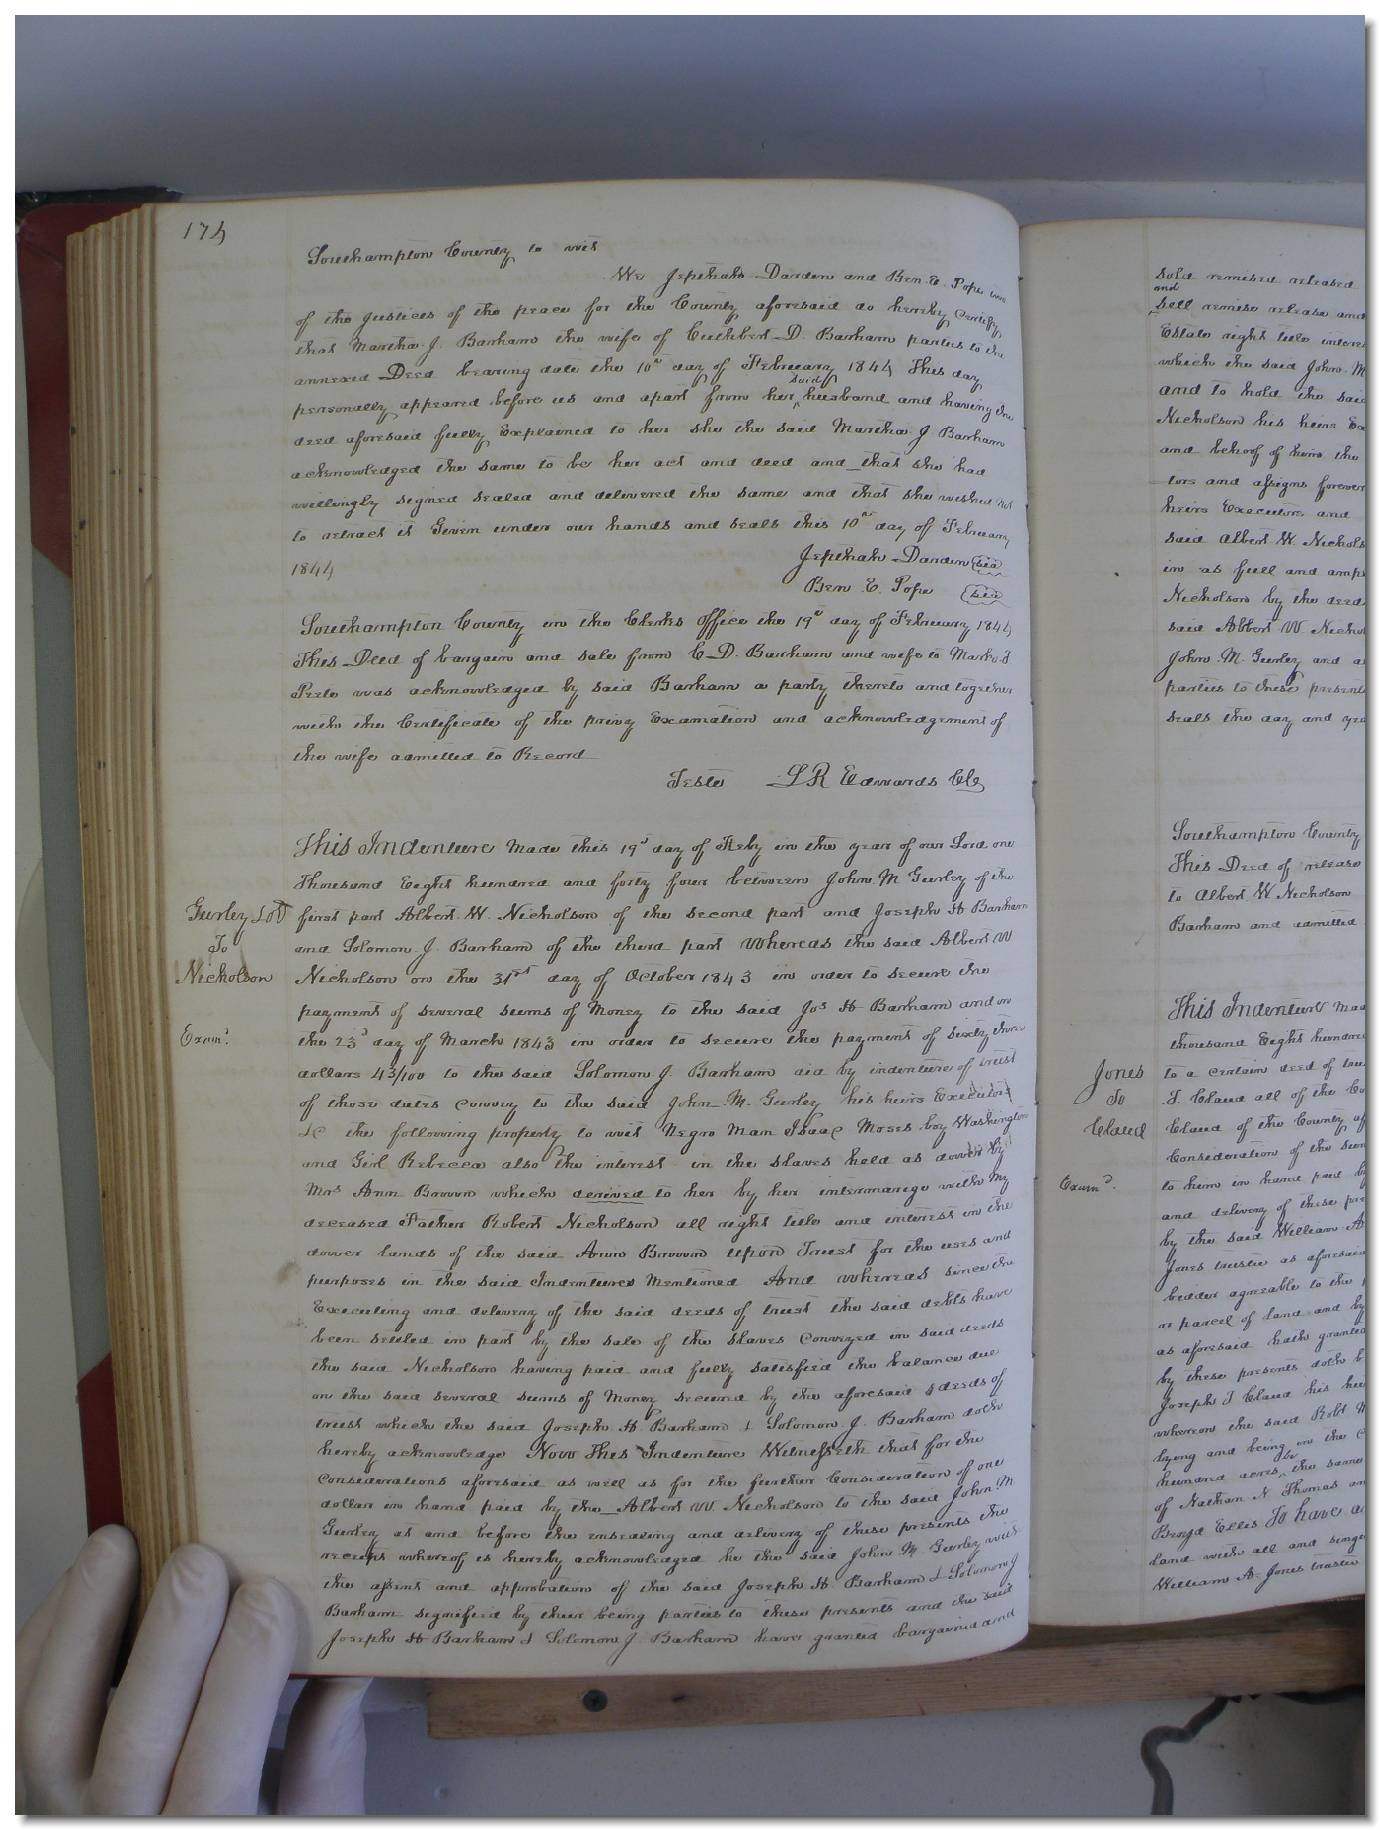 174
Southampton County to wit
We Jepthah Darden and Ben. E. Pope two
of the justices of the peace for the County aforesaid do hereby certify
that Martha J. Barham the wife of Cuthbert D. Barham parties to the
annexed Deed bearing date the 10th day of February 1844 This day
personally appeared before us and apart from her said husband and having the
deed aforesaid fully Explained to her she the said Martha J Barham
acknowledged the same to be her act and deed and that she had
willingly signed sealed and delivered the same and that she wished not
to retract it Given under our hands and seals this 10th day of February
1844
Jepthah Darden
Ben E. Pope
Southampton County in the Clerks Office the 19th day of February 1844
This Deed of bargain and sale from C D. Barham and wife to Marks J.
Peete was acknowledged by said Barham a party thereto and together
with the Certificate of the privy Examation and acknowledgement of
the wife admitted to Record
Teste L R Edwards Clk
This Indenture Made this 19th day of Feby in the year of our Lord one
Thousand Eight hundred and forty four between John M Gurley of the
Gurley
To
Nicholson
Examd
first part Albert W. Nicholson of the second part and Joseph H Barham
and Solomon J. Barham of the third part Whereas the said Albert W
Nicholson on the 31st day of October 1843 in order to secure the
payment of several sums of Money to the said Jos H Barham and on
the 23d day of March 1843 in order to secure the payment of sixty three
dollars 43/100 to the said Solomon J. Barham did by indenture of trust
of those dates convey to the said John M. Gurley his heirs Executors
&c the following property to wit Negro Man Isaac Moses boy Washington
and Girl Rebecca also the interest in the slaves held as dower by
Mrs Ann Brown which derived to her by her intermarige with My
deceased Father Robert Nicholson all right title and interest in the
dower lands of the said Ann Brown upon Trust for the uses and
purposes in the said Indentures Mentioned And whereas since the
Executing and delivery of the said deeds of trust the said debts have
been settled in part by the sale of the slaves conveyed in said deeds
the said Nicholson having paid and fully satisfied the balance due
on the said several sums of Money secured by the aforesaid deeds of
trust which the said Joseph H Barham & Solomon J. Barham doth
hereby acknowledge Now This Indenture Witnesseth that for the
considerations aforesaid as well as for the further Consideration of one
dollar in hand paid by the Albert W. Nicholson to the said John M
Gurley at and before the ensealing and delivery of these presents the
receipt whereof is hereby acknowledged he the said John M Gurley with
the assent and approbation of the said Joseph H Barham & Solomon J
Barham signified by their being parties to these presents and the said
Joseph H Barham & Solomon J Barham have granted bargained and
sold remised released
and
sell remise release and
Estate right title
which the said John M
and to hold the said
Nicholson his heirs
and behoof of him the
tors and assigns forever
heirs Executors and
said Albert W.
in as full and
Nicholson by the deed
said Albert W.
John M. Gurley and
parties to these present
seals the day and
Southampton County
This Deed of release
to Albert W Nicholson
Barham and admitted
This Indenture
thousand Eight
Jones
To
Claud
Examd.
to a certain deed of
J. Claud all of the
Claud of the County
Consideration of the
to him in hand paid
and delivery of these
by the said William
Jones trustee as aforesaid
bidder agreable to the
parcel of land and
as aforesaid hath
by these presents doth
Joseph J Claud his
whereon the said Robt
lying and being in the
hundred acres be the same
of Nathan N. Thomas
Benja Ellis To have
land with all and
William A. Jones trustee